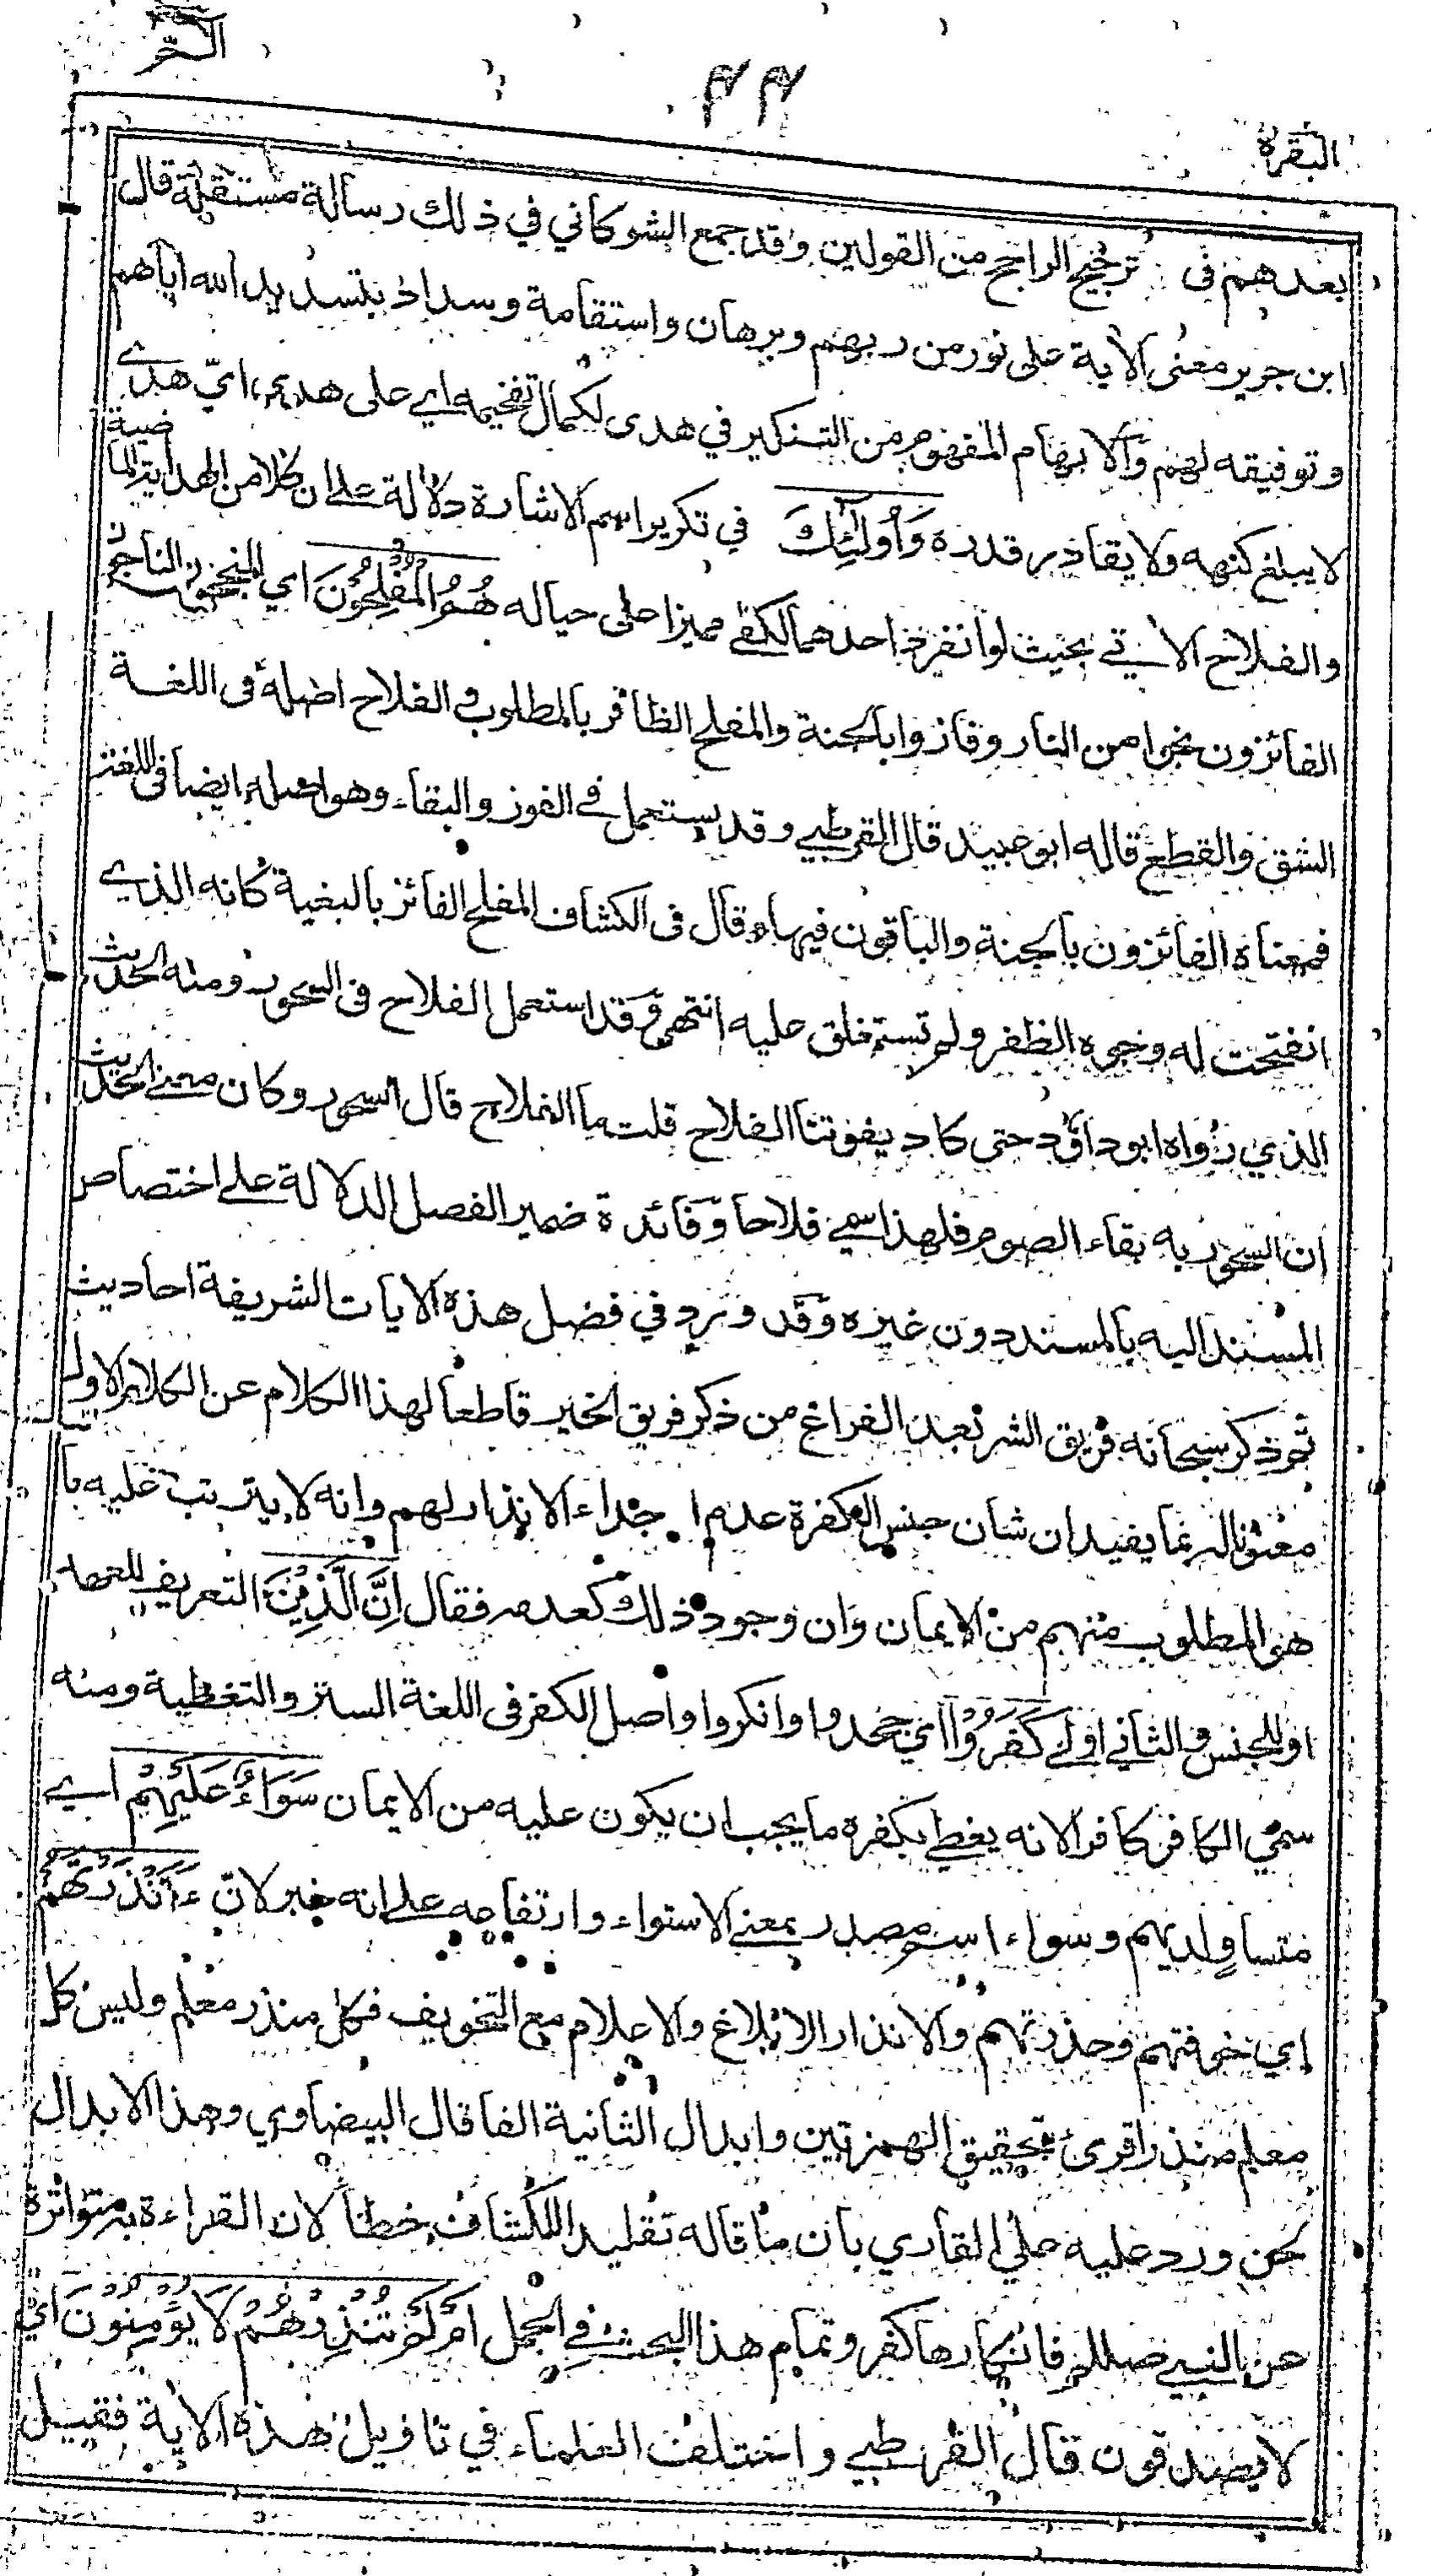 البقرة
٤٤
الٓمّٓ
بعدهم فى ترجيح الراجح من القولين وقد جمع الشوكاني في ذلك رسالة مستقلة قال
ابن جرير معنى الأية على نور من ربهم وبرهان واستقامة وسداد بتسديد الله اياهم
وتوفيقه لهم والابهام المفهوم من التنكير في هدى لكمال تفخيمه اي على هدى اي هدى
لا يبلغ كنهه ولا يقادر قدره وَأُولَٰئِكَ في تكرير اسم الاشارة دلالة على ان كلا من الهداية الماضية
والفلاح الأتي بحيث لو انفرد احدهما لكفى مميزا على حياله هُمُ الْمُفْلِحُونَ اي المنجحون الناجون
الفائزون نجوا من النار وفازوا بالجنة والمفلح الظافر بالمطلوب والفلاح اصله فى اللغة
الشق والقطع قاله ابو عبيد قال القرطبي وقد يستعمل في الفوز والبقاء وهو اصله ايضا فى اللغة
فمعناه الفائزون بالجنة والباقون فيها وقال فى الكشاف المفلح الفائز بالبغية كانه الذي
انفتحت له وجوه الظفر ولم تستغلق عليه انتهى وقد استعمل الفلاح فى السحور ومنه الحديث
الذي رواه ابو داؤد حتى كاد يفوتنا الفلاح قلت ما الفلاح قال السحور وكان معنى الحديث
ان السحور به بقاء الصوم فلهذا سمي فلاحا وفائدة ضمير الفصل الدلالة على اختصاص
المسند اليه بالمسند دون غيره وقد ورد في فضل هذه الايات الشريفة احاديث
ثم ذكر سبحانه فريق الشر بعد الفراغ من ذكر فريق الخير قاطعا لهذا الكلام عن الكلام الاول
معنونا له بما يفيد ان شان جنس الكفرة عدم اجداء الانذار لهم وانه لا يترتب عليه ما
هو المطلوب منهم من الايمان وان وجود ذلك كعدمه فقال إِنَّ الَّذِيْنَ التعريف للعهد
او للجنس والثاني اولى كَفَرُوْا اي جحدوا وانكروا واصل الكفر فى اللغة الستر والتغطية ومنه
سمي الكافر كافرا لانه يغطي بكفره ما يجب ان يكون عليه من الايمان سَوَآءٌ عَلَيْهِمْ اي
متساو لديهم وسواء اسم مصدر بمعنى الاستواء وارتفاعه على انه خبر لان ءَاَنْذَرْتَهُمْ
اي خوفتهم وحذرتهم والانذار الابلاغ والاعلام مع التخويف فكل منذر معلم وليس كل
معلم منذرا قرئ بتحقيق الهمزتين وابدال الثانية الفا قال البيضاوي وهذا الابدال
لحن ورد عليه علي القاري بان ما قاله تقليدا للكشاف خطأ لان القراءة به متواترة
عن النبي صللم فانكارها كفر وتمام هذا البحث في الجمل اَمْ لَمْ تُنْذِرْهُمْ لَا يُؤْمِنُوْنَ اي
لا يصدقون قال القرطبي واختلف العلماء في تاويل هذه الاية فقيل